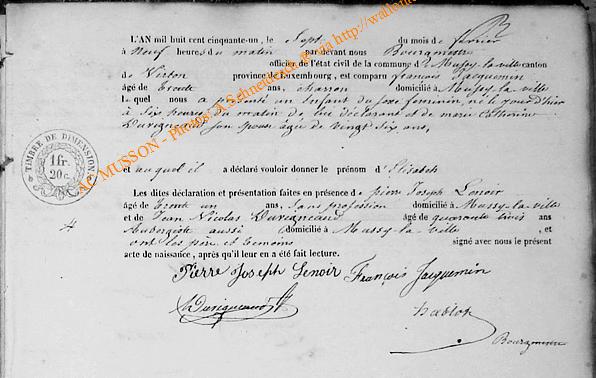 L'AN mil huit cent cinquante-un, le Sept du mois de février
à Neuf heures du matin par devant nous Bourgmestre
officier de l'état civil de la commune de Mussy-la-ville canton
de Virton province de Luxembourg, est comparu françois Jacquemin
âgé de trente ans, charron domicilié à Mussy-la-ville
lequel nous a présenté un Enfant du sexe féminin, né le jour d'hier
à Six heures du matin de lui déclarant et de marie Catherine
Duvigneaud son épouse âgée de vingt six ans,
et auquel il a déclaré vouloir donner le prénom d'Elisabeth
Les dites déclaration et présentation faites en présence de pierre Joseph Lenoir
âgé de trente un ans, Sans profession domicilié à Mussy-la-ville
et de Jean Nicolas Duvigneaud âgé de quarante ans
Aubergiste aussi domicilié à Mussy-la-ville, et
ont les père et témoins signé avec nous le présent
acte de naissance, après qu'il leur en a été fait lecture.
Pierre Joseph Lenoir François Jacquemin
Duvigneaud
Bourgmestre
TIMBRE DE DIMENSION
1 fr.
20 c.
AC MUSSON - Photos: A.Schneider & via http://wallon